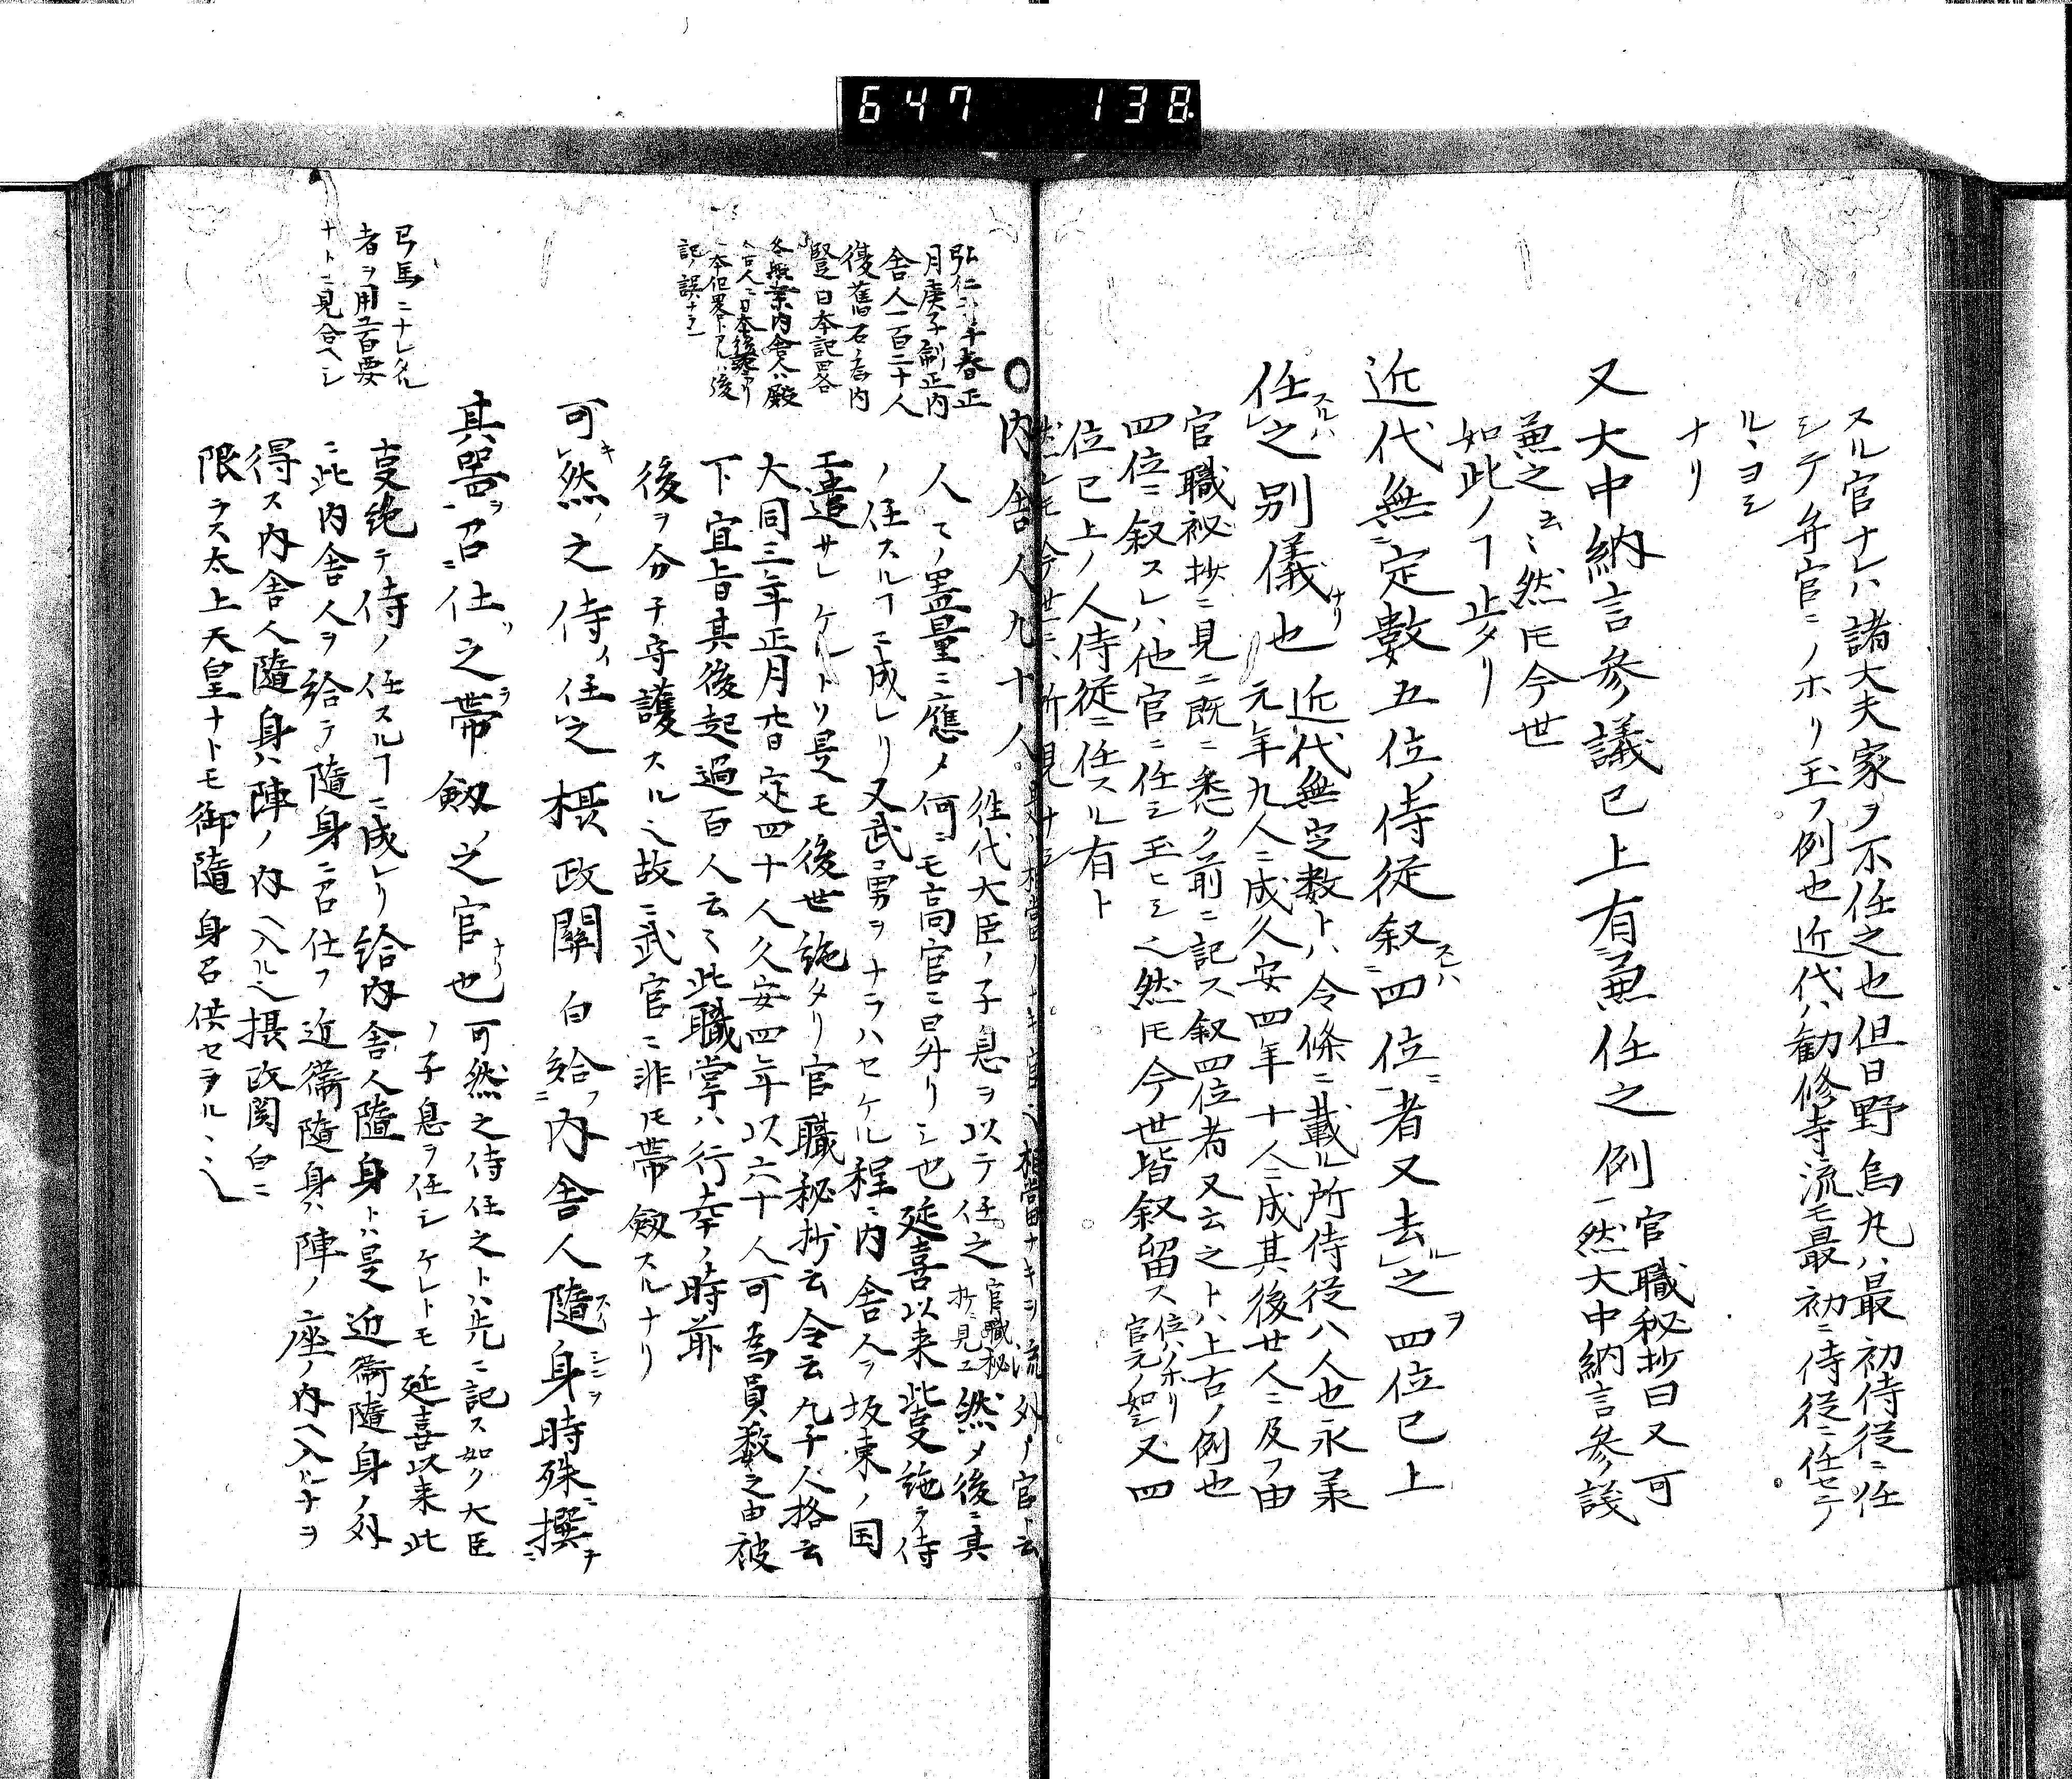 647 138
スル官ナレハ諸大夫家ヲ不任之也但日野烏丸ハ最初侍従ニ任
シテ弁官ニノホリ玉フ例也近代ハ勧修寺流モ最初ニ侍従ニ任セラ
ルヽヨシ
ナリ
又大中納言参議已上有兼任之例
官職秘抄曰又可
然大中納言参議
兼之云〻然𪜈今世
如此ノヿ止タリ
近代無定數五位ノ侍従叙四位者又去之四位已上
任之別儀也
近代無定数トハ令條ニ載ル所侍従八人也永業
元年九人ニ成久安四年十人ニ成其後廿人ニ及フ由
官職秘抄ニ見ニ既ニ悉ク前ニ記ス叙四位者又云之トハ上古ノ例也
四位ニ叙スレハ他官ニ任シ玉ヒシ也然𪜈今世皆叙留ス
位ハノホリ
官元ノ如シ
又四
位已上ノ人侍従ニ任スル有ト
然レ𪜈今世ニハ所見ナシ
○内舎人九十人
相當ナキヲ流外ノ官ト云
往代大臣ノ子息ヲ以テ任之
官職秘
抄ニ見エ
然メ後ニ其
人〻ノ器量ニ應メ何ニモ高官ニ昇リシ也延喜以来此叓絶ヲ侍
ノ任スルヿニ成レリ又武勇ヲナラハセケル程ニ内舎人ヲ坂東ノ国
エ遣サレケルトソ是モ後世絶タリ官職秘抄云令云九十人格云
大同三年正月廿日定四十人久安四年以六十人可為員数之由被
下宣旨其後起過百人云〻此職掌ハ行幸ノ時前
後ヲ分チ守護スル也故ニ武官ニ非𪜈帶劔スルナリ
可然之侍任之摂政關白給内舎人隨身時殊撰
其器召仕之帶劔之官也
可然之侍任之トハ先ニ記ス如ク大臣
ノ子息ヲ任シケレトモ延喜以来此
叓絶テ侍ノ任スルヿニ成レリ給内舎人隨身トハ是近衛隨身ノ外
ニ此内舎人ヲ給テ隨身ニ召仕フ近衛隨身ハ陣ノ座ノ内ヘ入ルヿヲ
得ス内舎人隨身ハ陣ノ内ヘ入ル也摂政関白ニ
限ラス太上天皇ナトモ御隨身召供セラルヽ也
弘仁二年春正
月庚子制正内
舎人一百二十人
復舊名為内
竪日本記略
記ノ誤ナラン
弓馬ニナレタル
者ヲ用ユ百要
ナトニ見合ヘシ